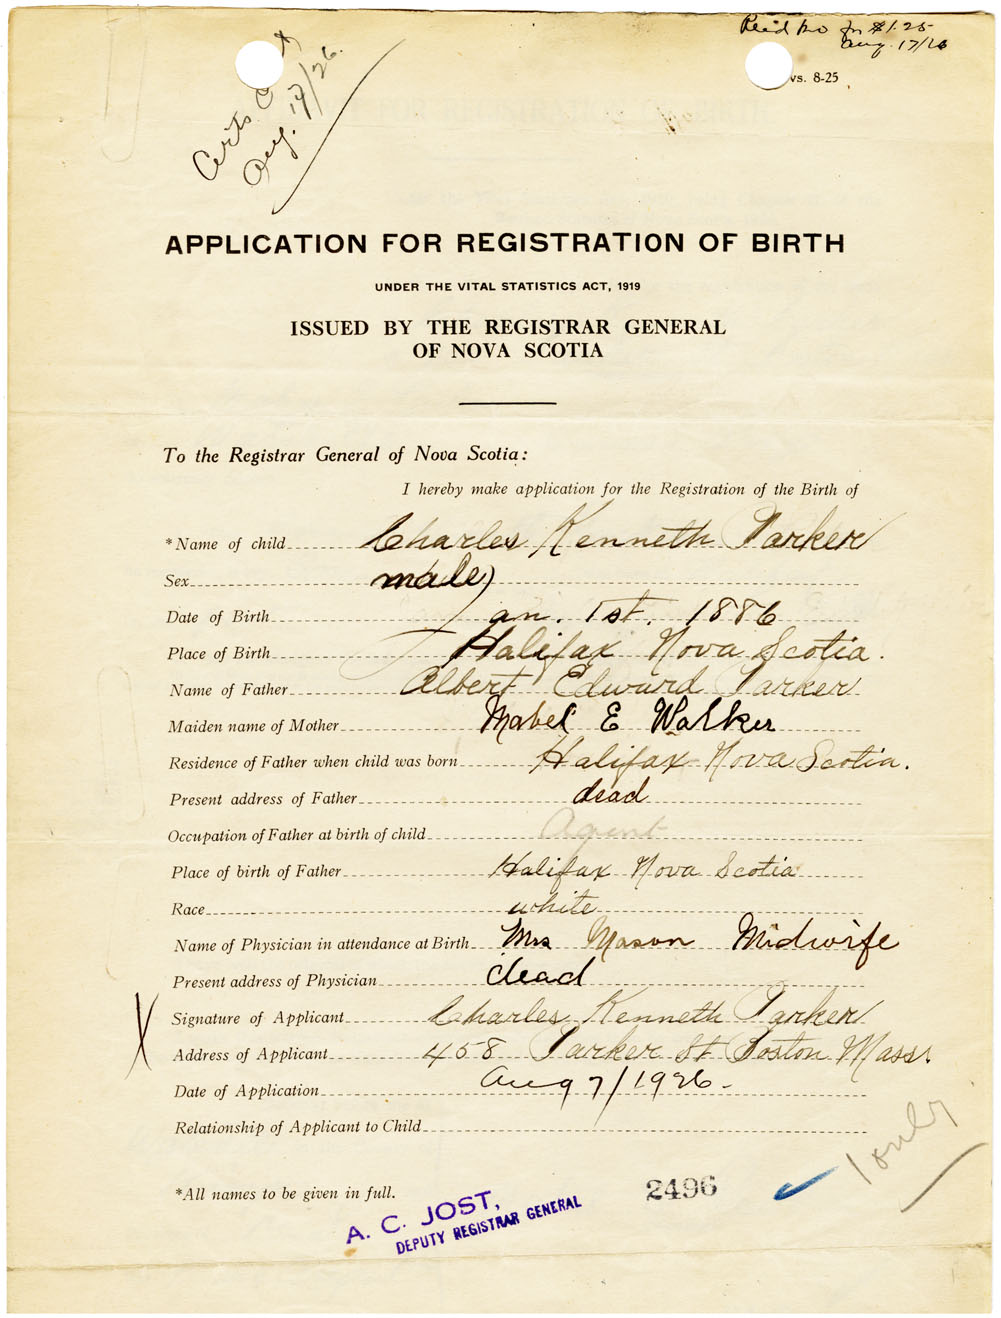 Rec'd for $1.25
Aug. 17/26
vs. 8-25
Certs
Aug. 17/26.
APPLICATION FOR REGISTRATION OF BIRTH
UNDER THE VITAL STATISTICS ACT, 1919
ISSUED BY THE REGISTRAR GENERAL
OF NOVA SCOTIA
To the Registrar General of Nova Scotia:
I hereby make application for the Registration of the Birth of
*Name of child Charles Kenneth Parker
Sex male
Date of Birth Jan. 1st. 1886
Place of Birth Halifax Nova Scotia.
Name of Father Albert Edward Parker
Maiden name of Mother Mabel E Walker
Residence of Father when child was born Halifax Nova Scotia.
Present address of Father dead
Occupation of Father at birth of child Agent
Place of birth of Father Halifax Nova Scotia
Race white
Name of Physician in attendance at Birth Mrs Mason Midwife
Present address of Physician dead
X
Signature of Applicant Charles Kenneth Parker
Address of Applicant 458 Parker St Boston Mass.
Date of Application Aug 7/1926-
Relationship of Applicant to Child
1 only
*All names to be given in full.
2496
A. C. JOST,
DEPUTY REGISTRAR GENERAL